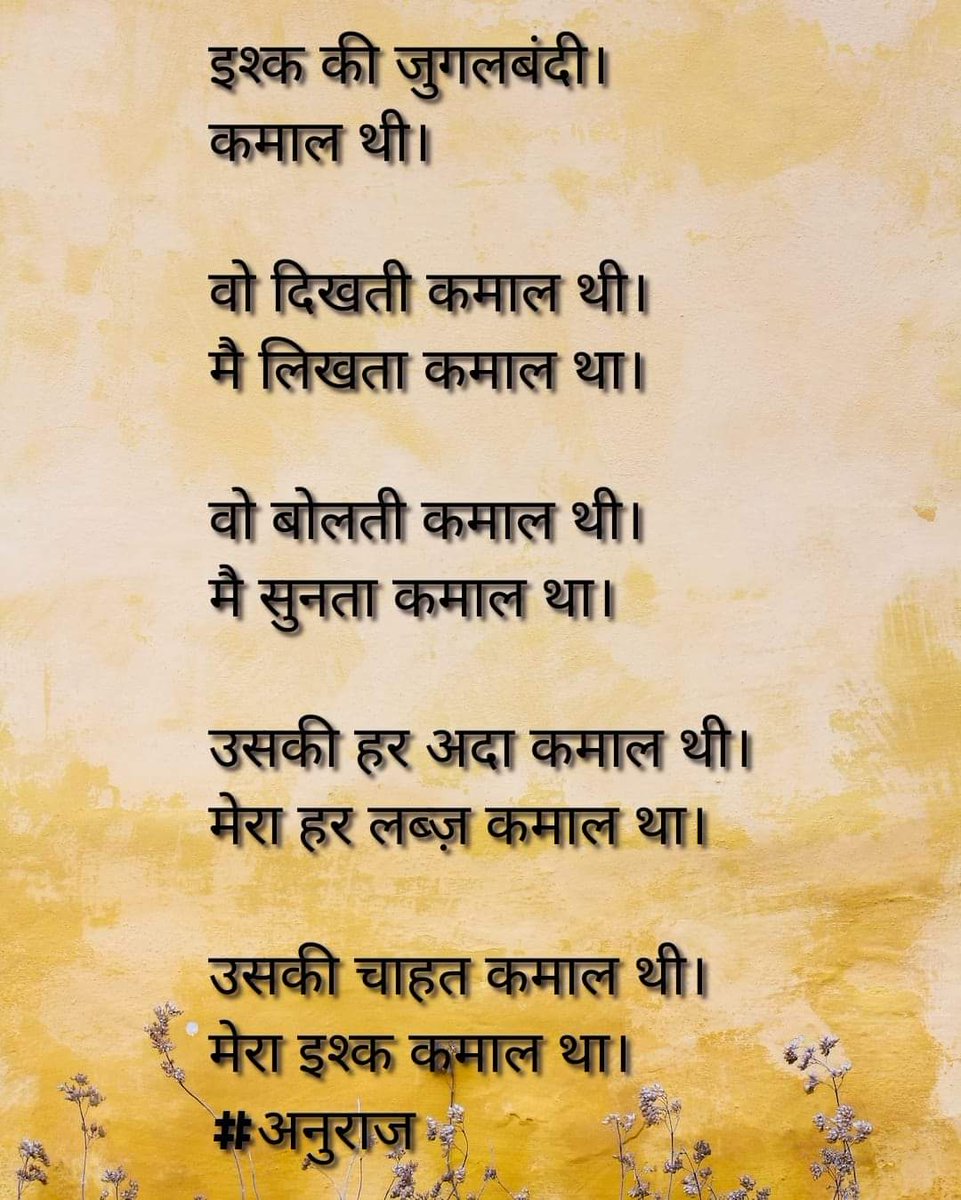 इश्क की जुगलबंदी।
कमाल थी।
वो दिखती कमाल थी।
मै लिखता कमाल था।
वो बोलती कमाल थी।
मै सुनता कमाल था।
उसकी हर अदा कमाल थी।
मेरा हर लब्ज़ कमाल था।
उसकी चाहत कमाल थी।
मेरा इश्क कमाल था।
#अनुराज